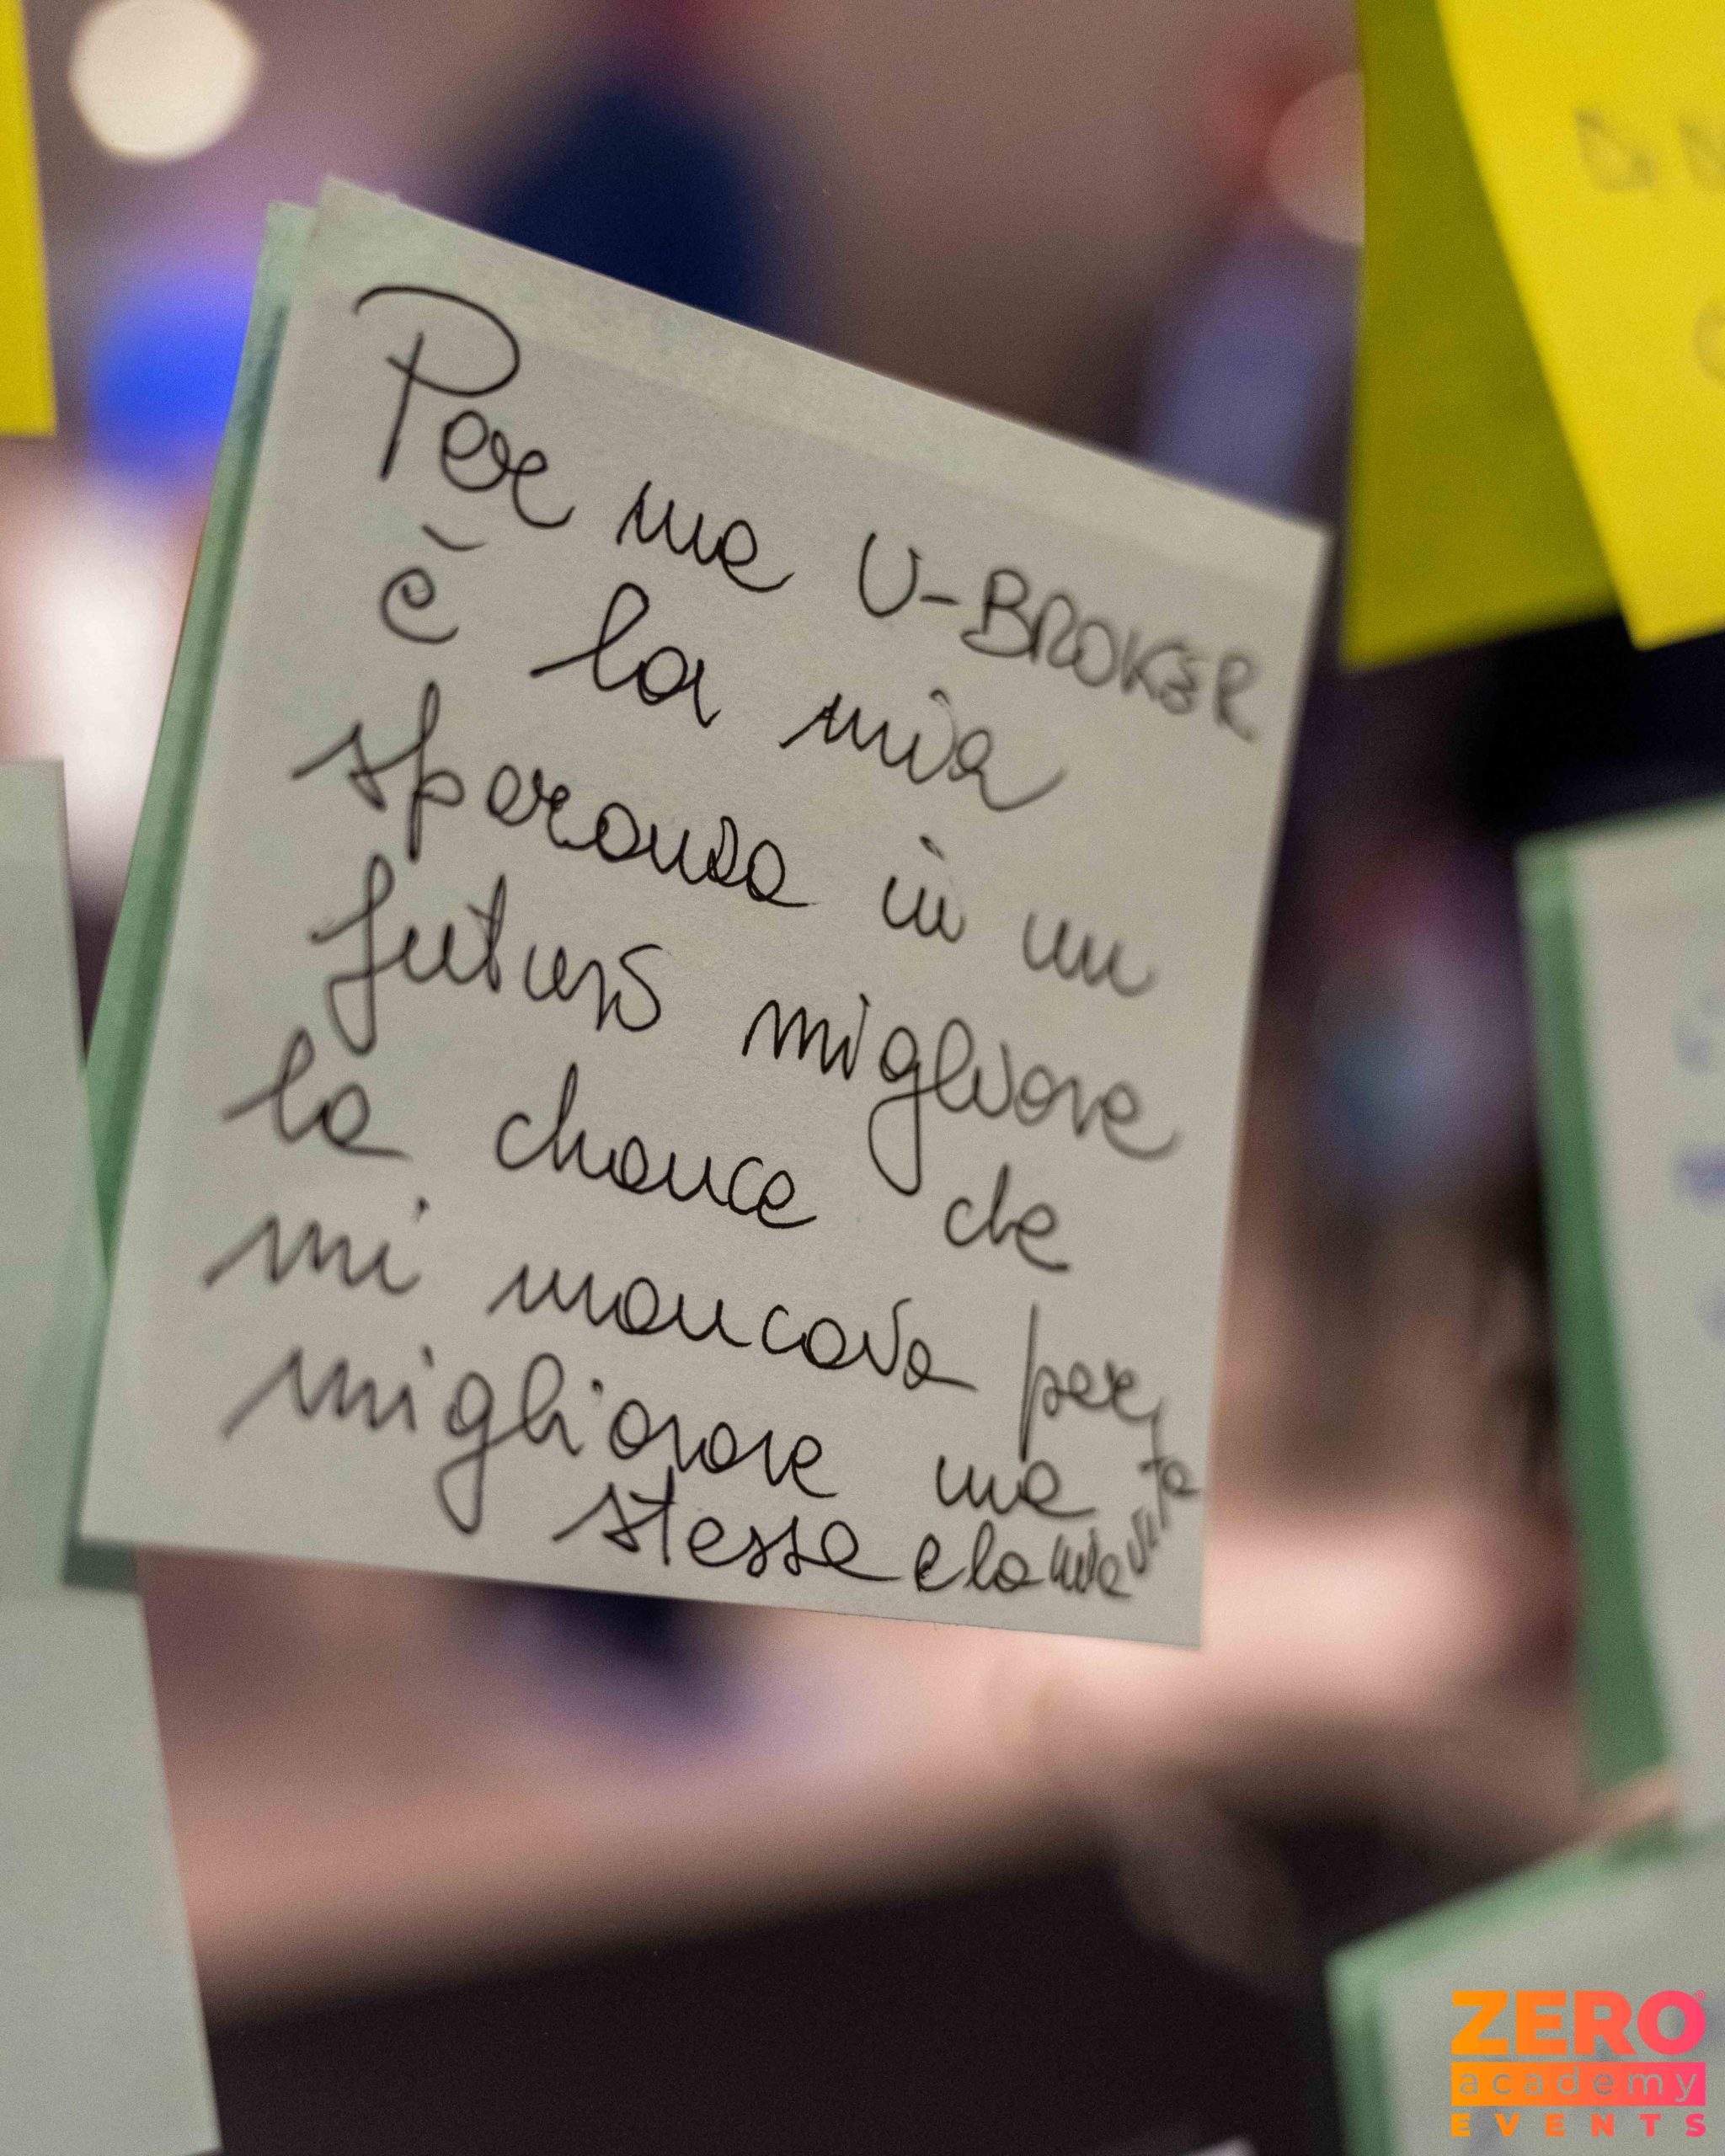 Per me U-BROKER
è la mia
speranza in un
futuro migliore
la chance che
mi mancava per
migliorare me
stessa e la mia vita
ZERO
academy
EVENTS